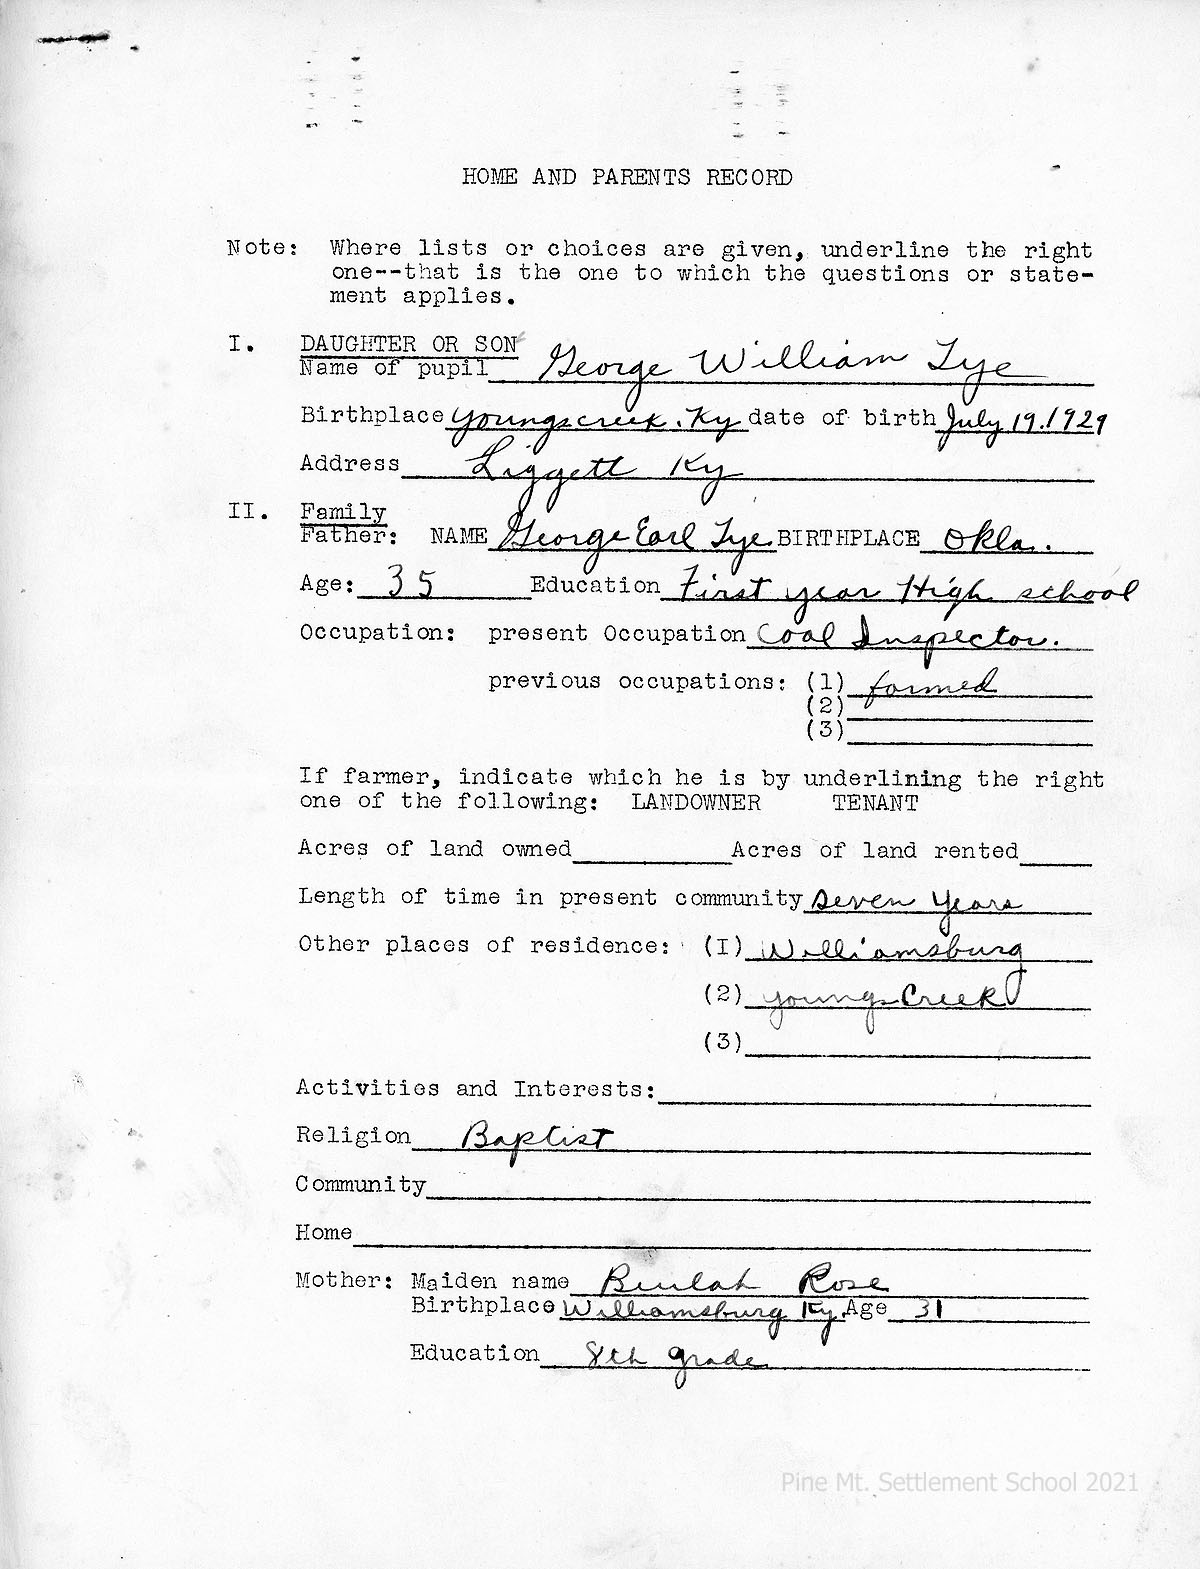 HOME AND PARENTS RECORD
Note: Where lists or choices are given, underline the right
one--that is the one to which the questions or state-
ment applies.
I. DAUGHTER OR SON
Name of pupil George William Tye
Birthplace Youngscreek. Ky date of birth July 19.1929
Address Liggett Ky
II. Family
Father: NAME George Earl Tye BIRTHPLACE Okla.
Age: 35 Education First year High school
Occupation: present Occupation Coal Inspector.
previous occupations: (1) farmed
(2)
(3)
If farmer, indicate which he is by underlining the right
one of the following: LANDOWNER TENANT
Acres of land owned Acres of land rented
Length of time in present community Seven Years
Other places of residence: (I) Williamsburg
(2) Youngs Creek
(3)
Activities and Interests:
Religion Baptist
Community
Home
Mother: Maiden name Beulah Rose
Birthplace Williamsburg Ky. Age 31
Education 8th grade
Pine Mt. Settlement School 2021